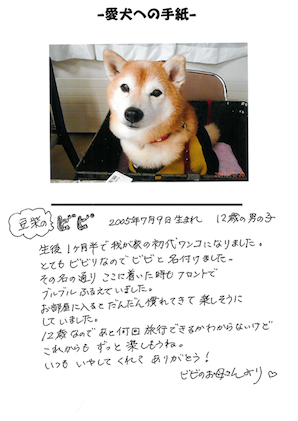 -愛犬への手紙-
豆柴の ビビ 2005年7月9日生まれ 12歳の男の子
生後1ヶ月半で我が家の初代ワンコになりました。
とてもビビリなのでビビと名付けました。
その名の通り ここに着いた時も フロントで
ブルブルふるえていました。
お部屋に入るとだんだん慣れてきて 楽しそうに
していました。
12歳なのであと何回 旅行できるかわからないけど
これからも ずっと 楽しもうね。
いつも いやしてくれて ありがとう!
ビビのお母さんより♡